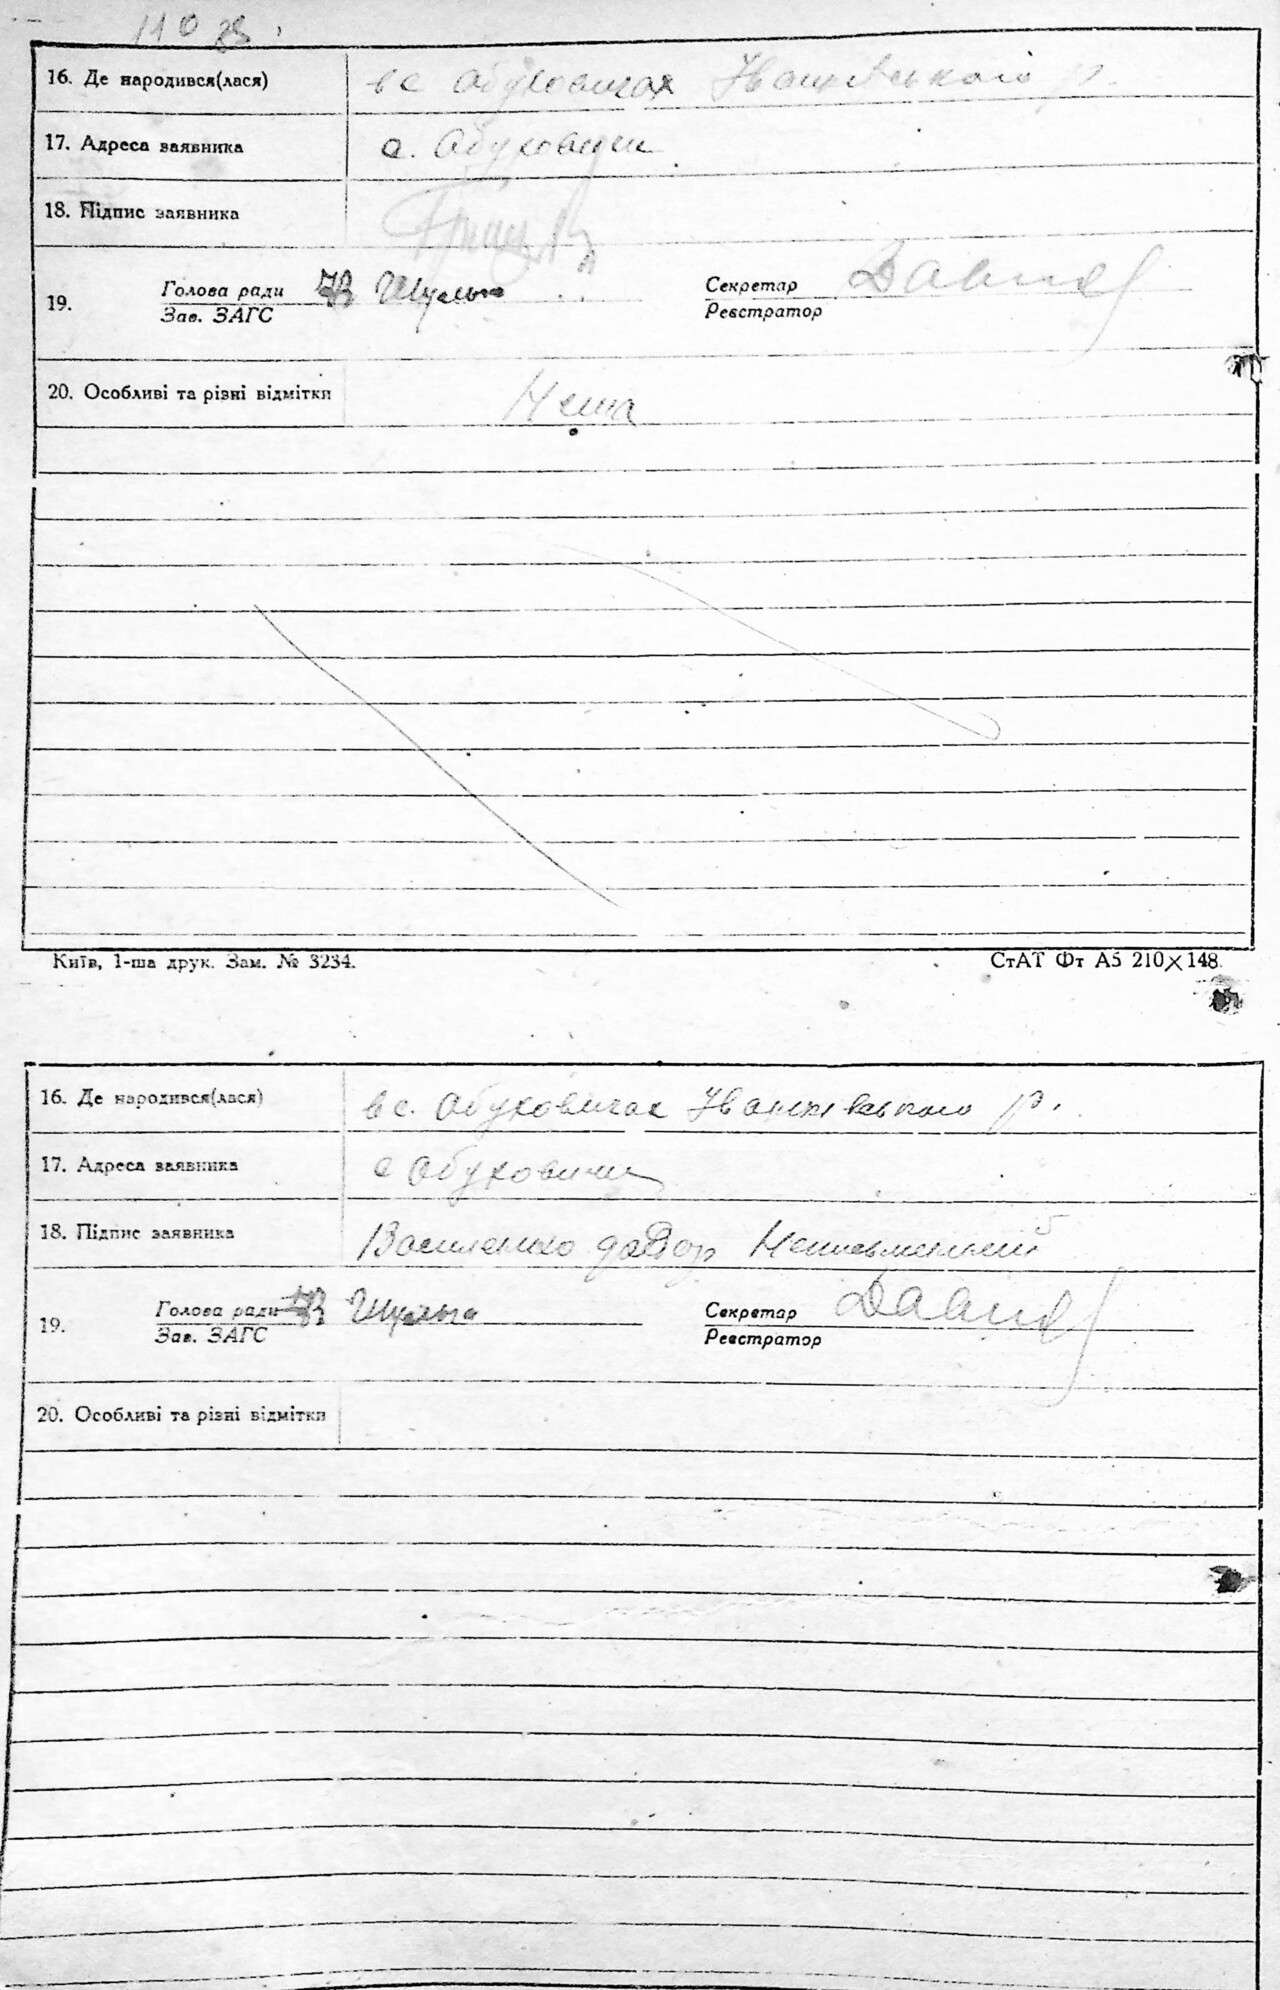 16. Де народився(лася) в с Обуховичах Іванківського р.
17. Адреса заявника с. Обуховичі
18. Підпис заявника
19. Голова ради Шульга Секретар
Зав. ЗАГС Реєстратор
20. Особливі та різні відмітки Нема
Київ, 1-ша друк. Зам. № 3234. СтАТ Фт А5 210×148.
16. Де народився(лася) в с. Обуховичах Іванківського р.
17. Адреса заявника с Обуховичі
18. Підпис заявника Василенко Неписьменний
19. Голова ради Шульга Секретар
Зав. ЗАГС Реєстратор
20. Особливі та різні відмітки